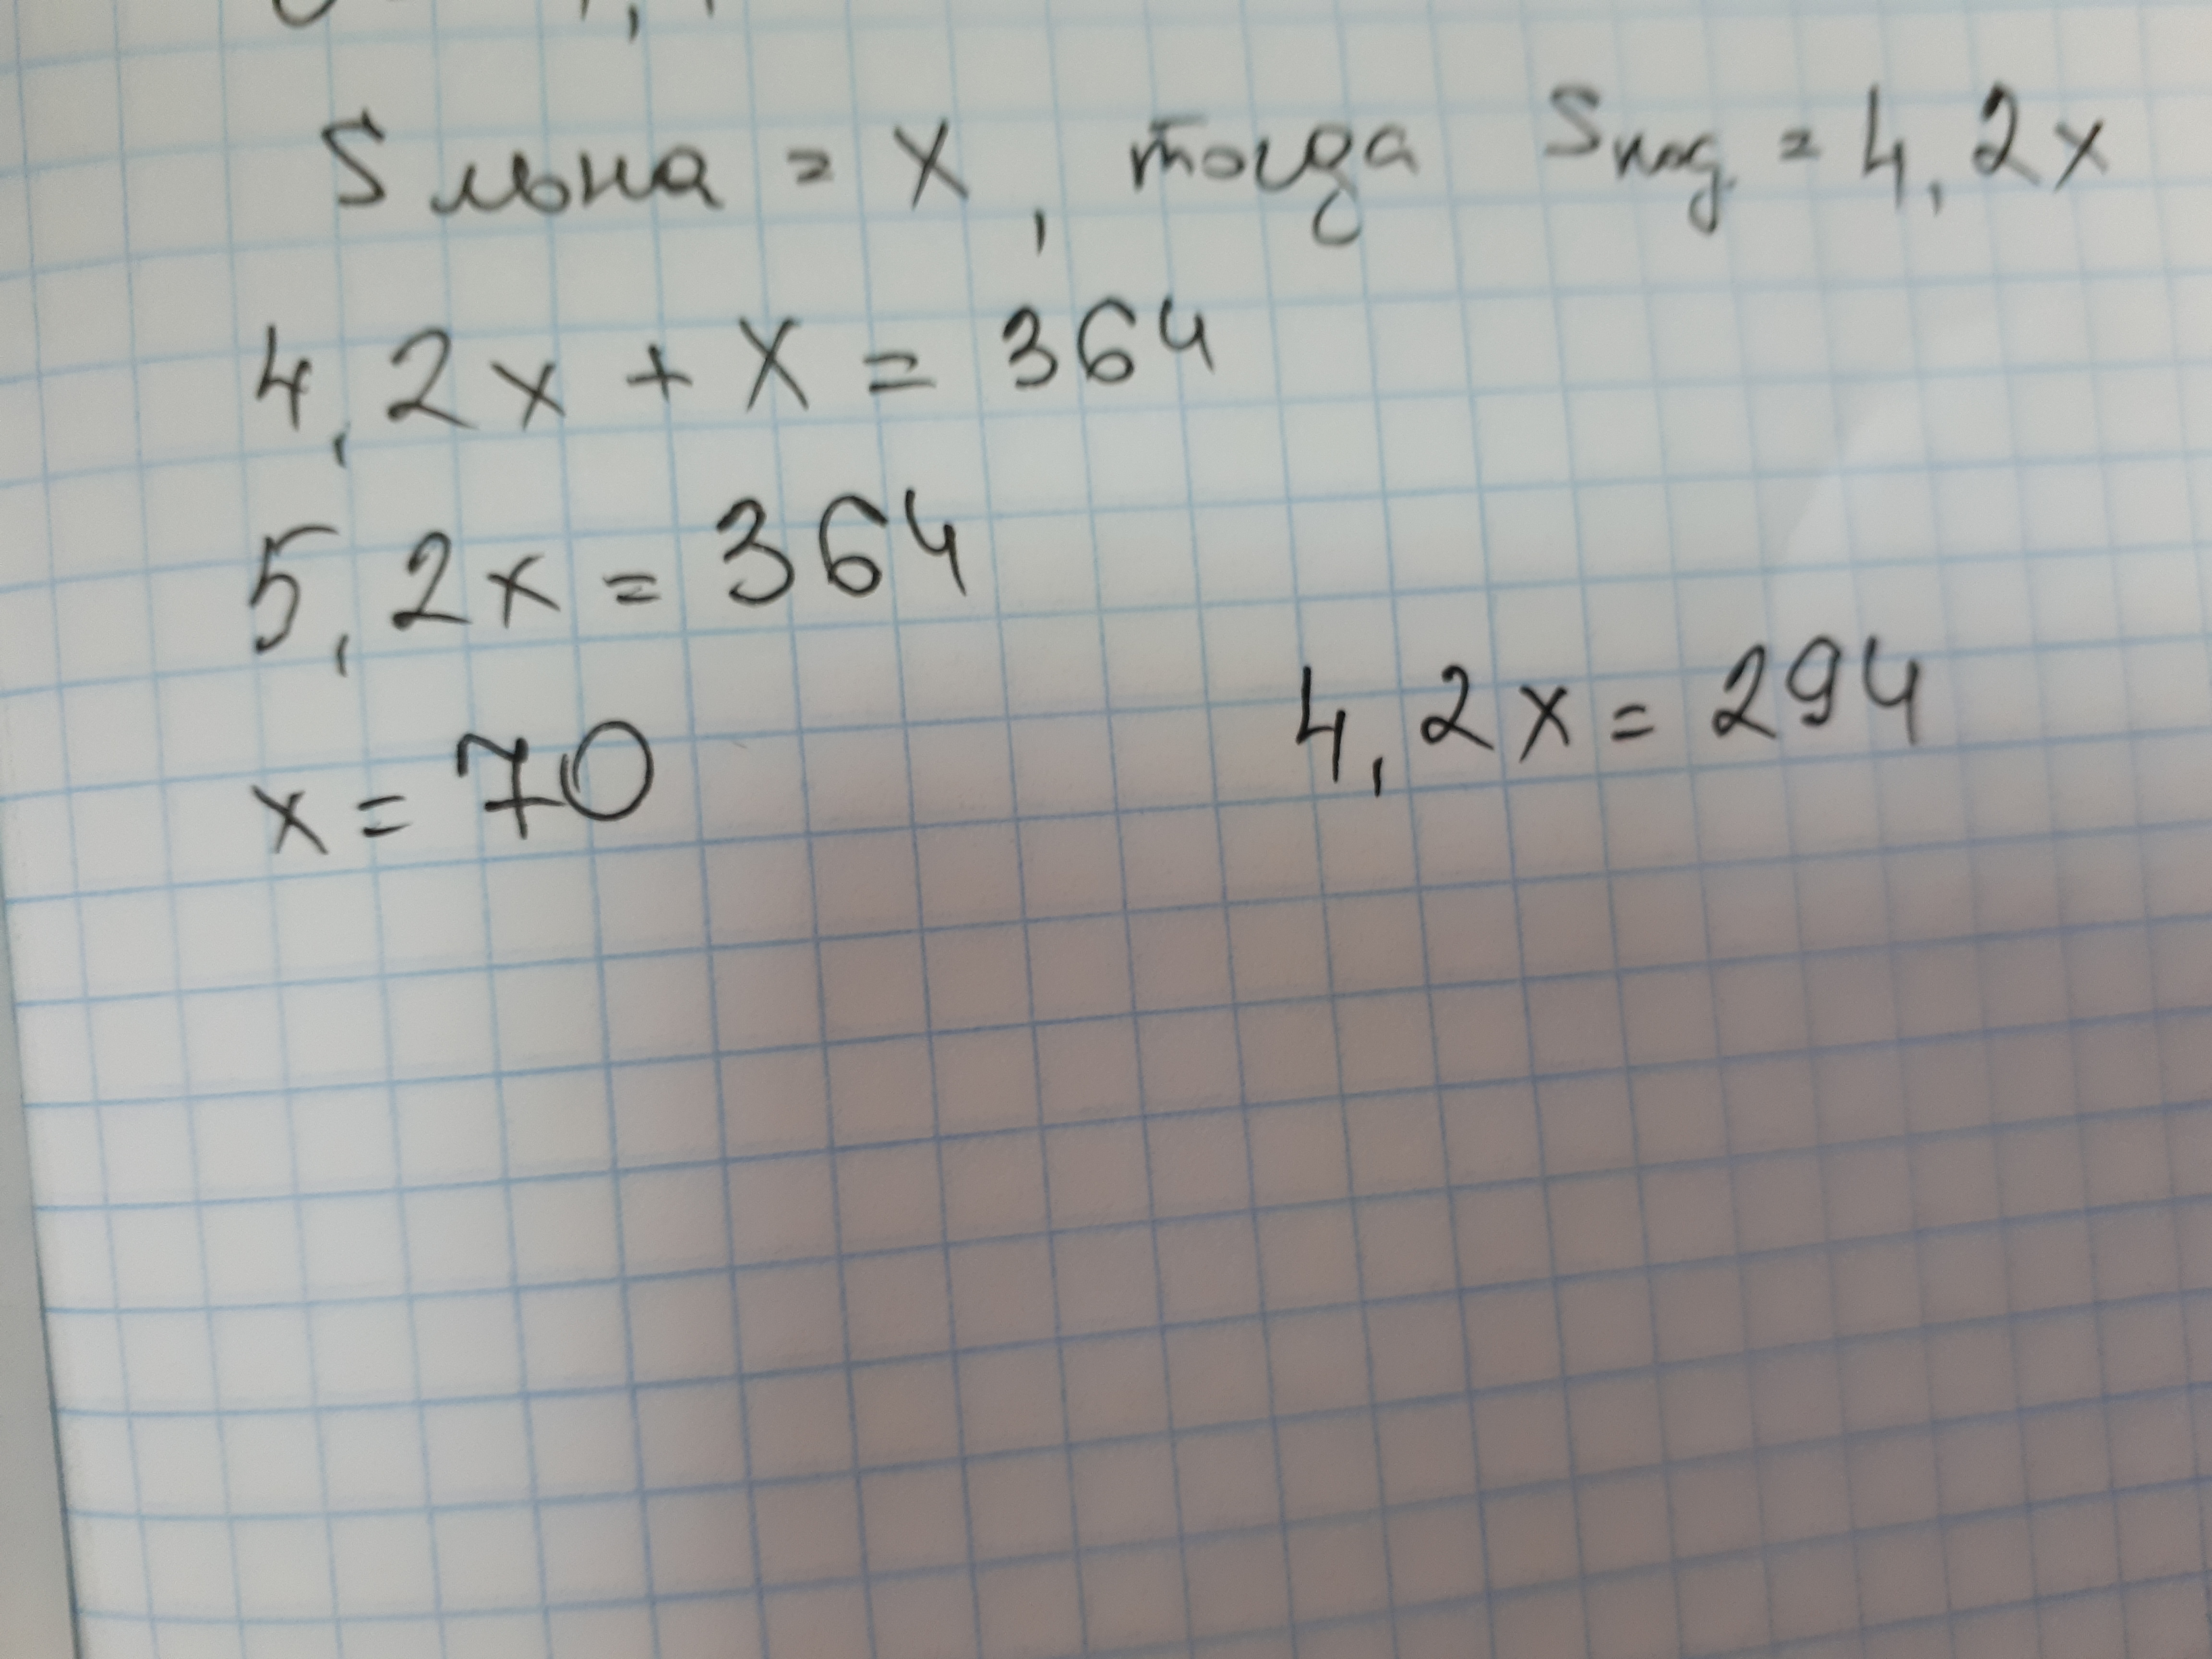 S льна = x, тогда Sклд. = 4,2x
4,2x + x = 364
5,2x = 364
4,2x = 294
x = 70